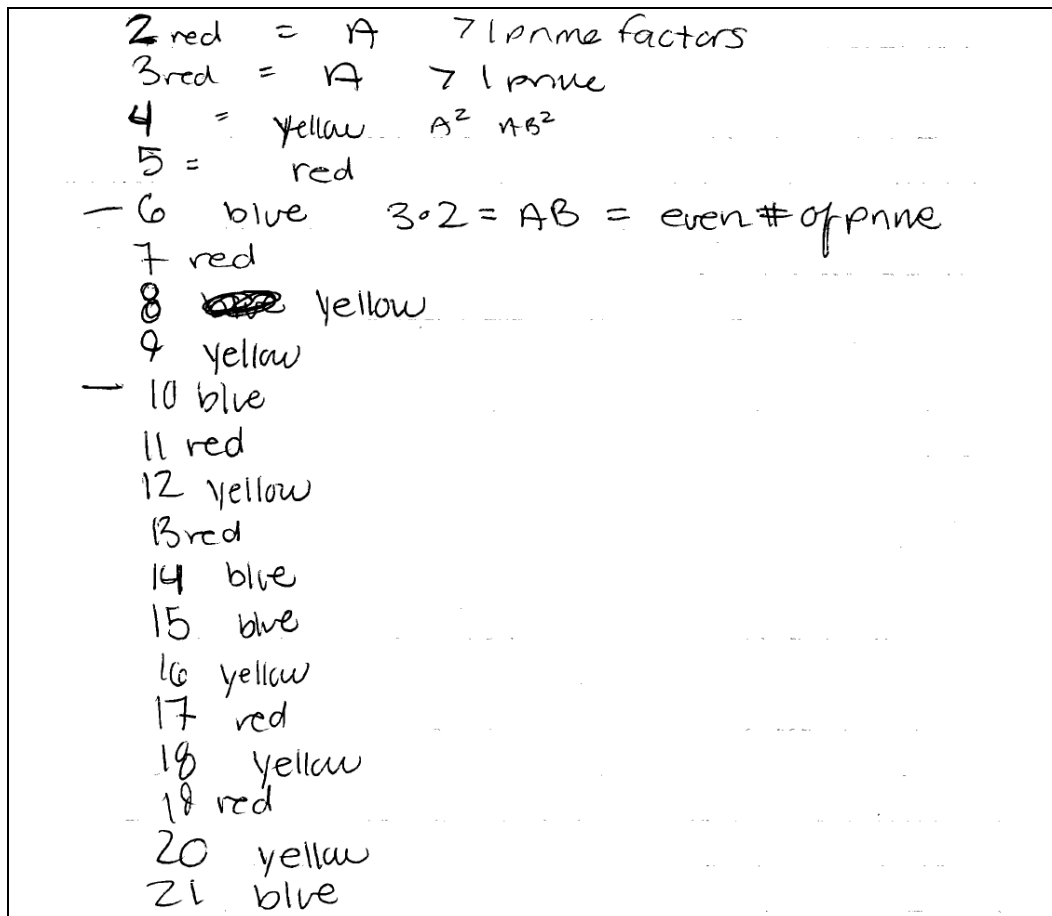 2 red = A > 1 prime factors
3 red = A > 1 prime
4 = yellow A² AB²
5 = red
— 6 blue 3·2 = AB = even # of prime
7 red
8 yellow
9 yellow
— 10 blue
11 red
12 yellow
13 red
14 blue
15 blue
16 yellow
17 red
18 yellow
19 red
20 yellow
21 blue